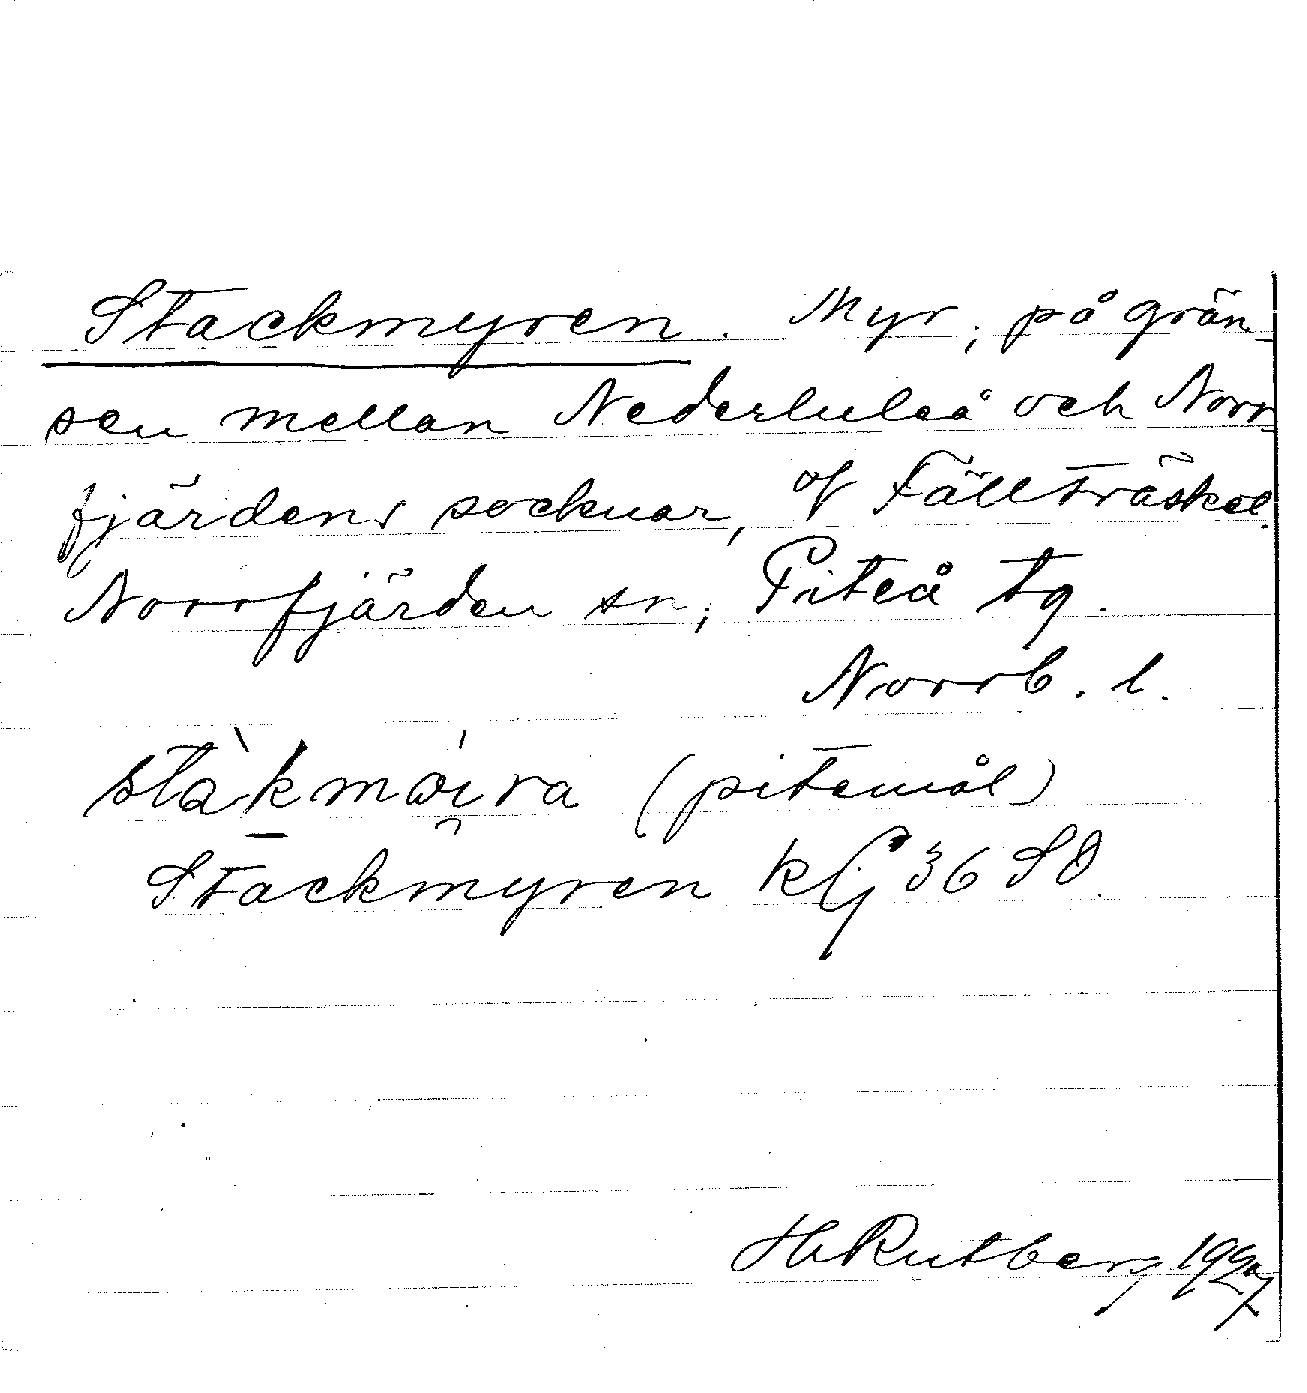 Stackmyren. Myr, på grän-
sen mellan Nederluleå och Norr-
fjärdens socknar, of Fällträsket.
Norrfjärden sn, Piteå tg.
Norrb. l.
(pitemål)
Stackmyren kG 36 SO.
H Rutberg 1927